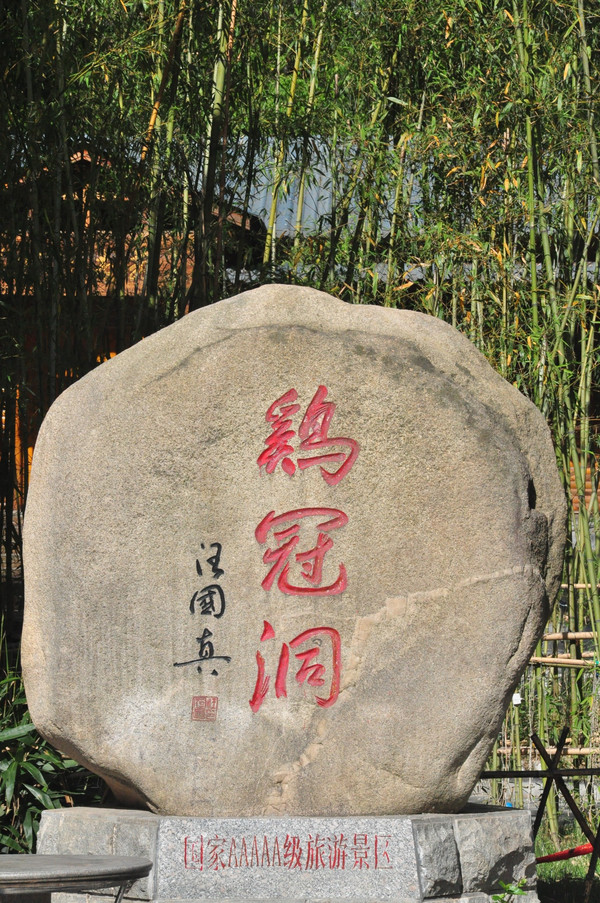 鷄冠洞
汪國真
国家AAAAA级旅游景区